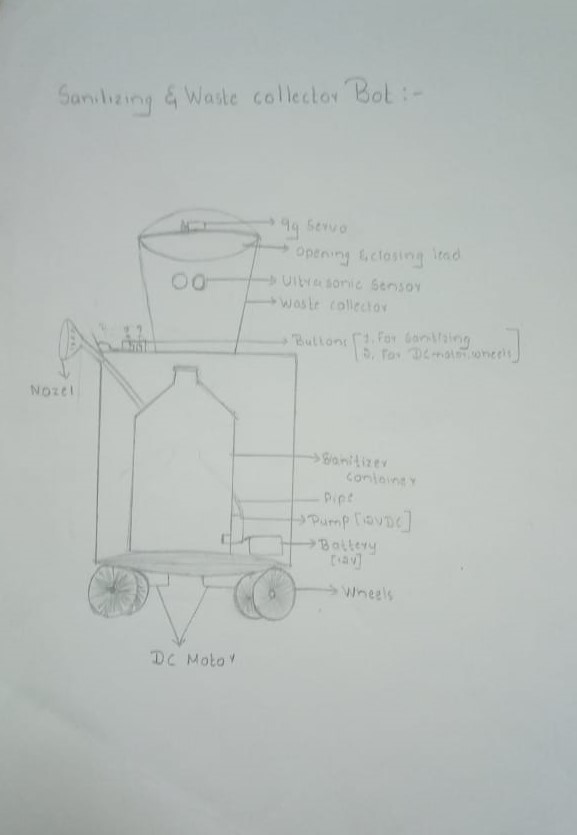 Sanitizing & Waste collector Bot :-
9g Servo
opening & closing lead
Ultrasonic Sensor
Waste collector
Buttons [1. For Sanitizing
2. For DC motor, wheels]
Nozel
Sanitizer
container
Pipe
Pump [12V DC]
Battery
[12V]
Wheels
DC Motor